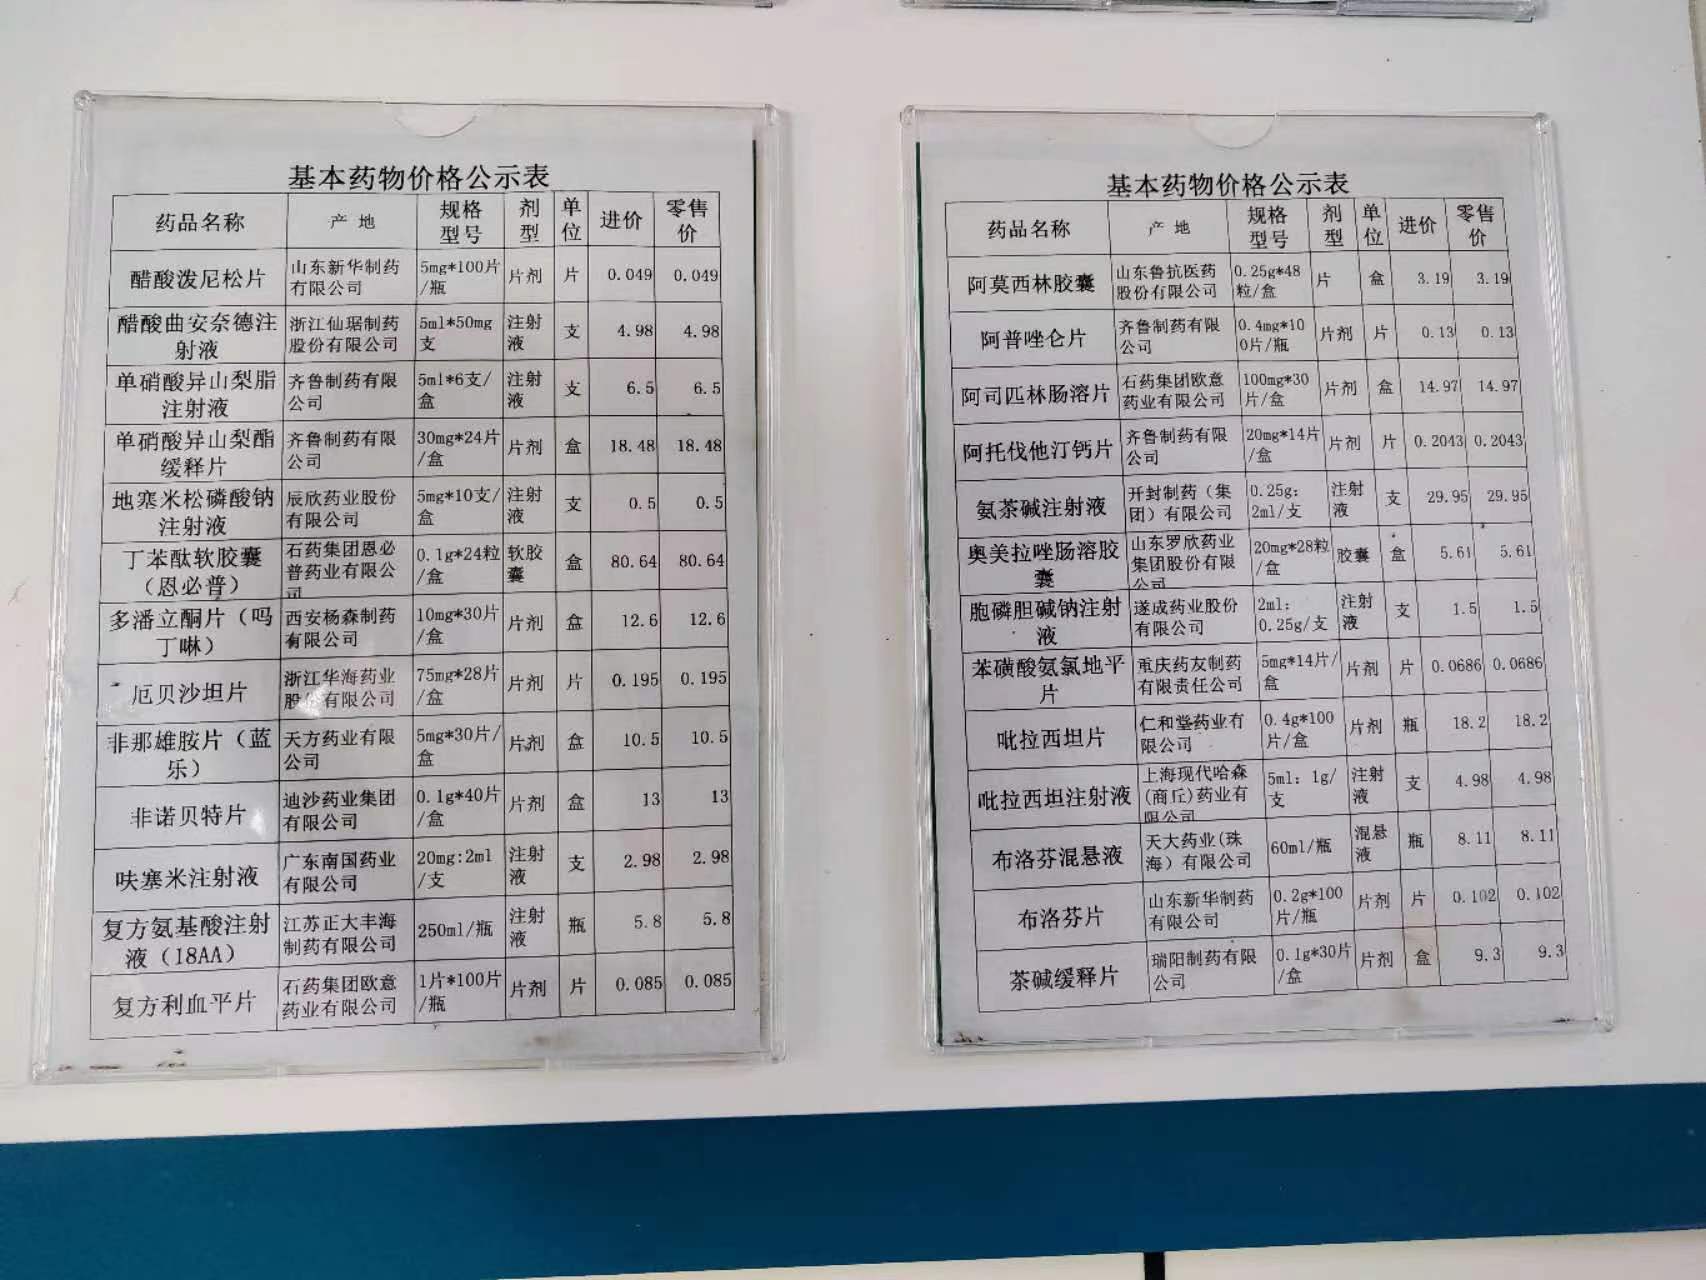 基本药物价格公示表
药品名称 产 地 规格型号 剂型 单位 进价 零售价
醋酸泼尼松片 山东新华制药有限公司 5mg*100片/瓶 片剂 片 0.049 0.049
醋酸曲安奈德注射液 浙江仙琚制药股份有限公司 5ml*50mg支 注射液 支 4.98 4.98
单硝酸异山梨脂注射液 齐鲁制药有限公司 5ml*6支/盒 注射液 支 6.5 6.5
单硝酸异山梨酯缓释片 齐鲁制药有限公司 30mg*24片/盒 片剂 盒 18.48 18.48
地塞米松磷酸钠注射液 辰欣药业股份有限公司 5mg*10支/盒 注射液 支 0.5 0.5
丁苯酞软胶囊（恩必普） 石药集团恩必普药业有限公司 0.1g*24粒/盒 软胶囊 盒 80.64 80.64
多潘立酮片（吗丁啉） 西安杨森制药有限公司 10mg*30片/盒 片剂 盒 12.6 12.6
厄贝沙坦片 浙江华海药业股份有限公司 75mg*28片/盒 片剂 片 0.195 0.195
非那雄胺片（蓝乐） 天方药业有限公司 5mg*30片/盒 片剂 盒 10.5 10.5
非诺贝特片 迪沙药业集团有限公司 0.1g*40片/盒 片剂 盒 13 13
呋塞米注射液 广东南国药业有限公司 20mg:2ml/支 注射液 支 2.98 2.98
复方氨基酸注射液（18AA） 江苏正大丰海制药有限公司 250ml/瓶 注射液 瓶 5.8 5.8
复方利血平片 石药集团欧意药业有限公司 1片*100片/瓶 片剂 片 0.085 0.085
基本药物价格公示表
药品名称 产 地 规格型号 剂型 单位 进价 零售价
阿莫西林胶囊 山东鲁抗医药股份有限公司 0.25g*48粒/盒 片 盒 3.19 3.19
阿普唑仑片 齐鲁制药有限公司 0.4mg*100片/瓶 片剂 片 0.13 0.13
阿司匹林肠溶片 石药集团欧意药业有限公司 100mg*30片/盒 片剂 盒 14.97 14.97
阿托伐他汀钙片 齐鲁制药有限公司 20mg*14片/盒 片剂 片 0.2043 0.2043
氨茶碱注射液 开封制药（集团）有限公司 0.25g：2ml/支 注射液 支 29.95 29.95
奥美拉唑肠溶胶囊 山东罗欣药业集团股份有限公司 20mg*28粒/盒 胶囊 盒 5.61 5.61
胞磷胆碱钠注射液 遂成药业股份有限公司 2ml：0.25g/支 注射液 支 1.5 1.5
苯磺酸氨氯地平片 重庆药友制药有限责任公司 5mg*14片/盒 片剂 片 0.0686 0.0686
吡拉西坦片 仁和堂药业有限公司 0.4g*100片/盒 片剂 瓶 18.2 18.2
吡拉西坦注射液 上海现代哈森(商丘)药业有限公司 5ml：1g/支 注射液 支 4.98 4.98
布洛芬混悬液 天大药业(珠海）有限公司 60ml/瓶 混悬液 瓶 8.11 8.11
布洛芬片 山东新华制药有限公司 0.2g*100片/瓶 片剂 片 0.102 0.102
茶碱缓释片 瑞阳制药有限公司 0.1g*30片/盒 片剂 盒 9.3 9.3